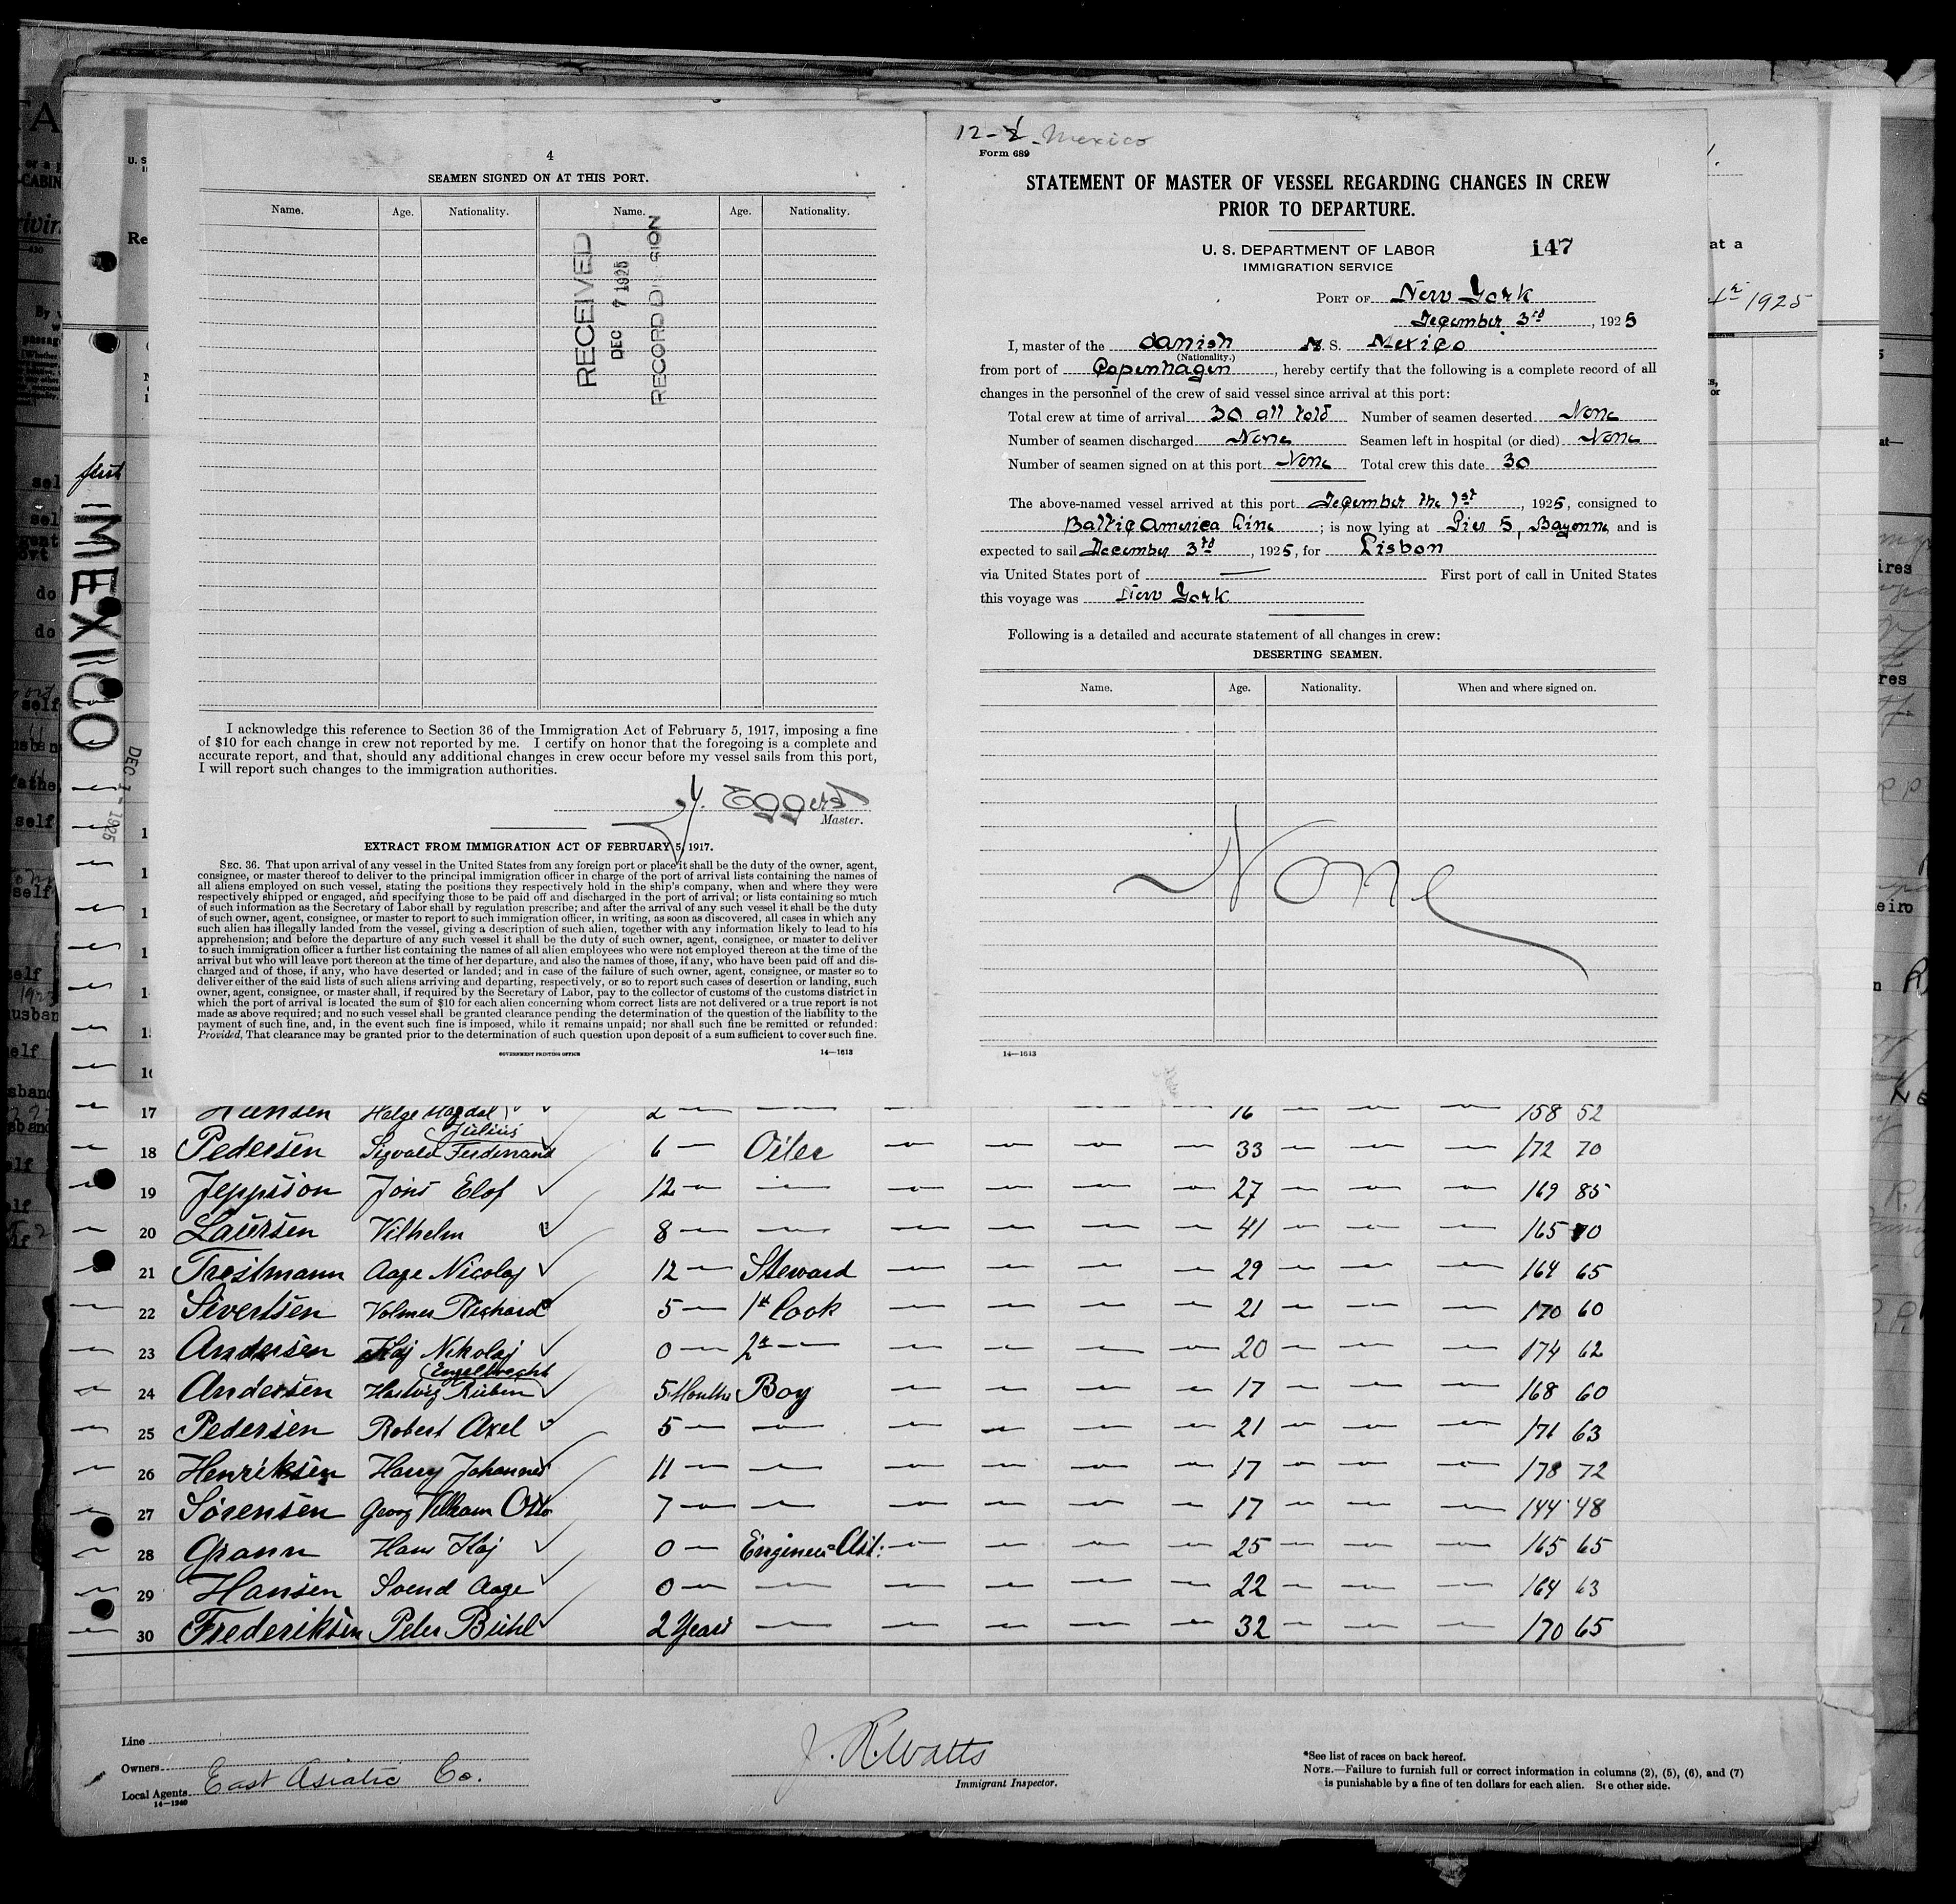 4
SEAMEN SIGNED ON AT THIS PORT.
Name. Age. Nationality. Name. Age. Nationality.
RECEIVED
DEC 7 1925
RECORD DIVISION
I acknowledge this reference to Section 36 of the Immigration Act of February 5, 1917, imposing a fine
of $10 for each change in crew not reported by me. I certify on honor that the foregoing is a complete and
accurate report, and that, should any additional changes in crew occur before my vessel sails from this port,
I will report such changes to the immigration authorities.
Eggers
Master.
EXTRACT FROM IMMIGRATION ACT OF FEBRUARY 5, 1917.
SEC. 36. That upon arrival of any vessel in the United States from any foreign port or place it shall be the duty of the owner, agent,
consignee, or master thereof to deliver to the principal immigration officer in charge of the port of arrival lists containing the names of
all aliens employed on such vessel, stating the positions they respectively hold in the ship's company, when and where they were
respectively shipped or engaged, and specifying those to be paid off and discharged in the port of arrival; or lists containing so much
of such information as the Secretary of Labor shall by regulation prescribe; and after the arrival of any such vessel it shall be the duty
of such owner, agent, consignee, or master to report to such immigration officer, in writing, as soon as discovered, all cases in which any
such alien has illegally landed from the vessel, giving a description of such alien, together with any information likely to lead to his
apprehension; and before the departure of any such vessel it shall be the duty of such owner, agent, consignee, or master to deliver
to such immigration officer a further list containing the names of all alien employees who were not employed thereon at the time of the
arrival but who will leave port thereon at the time of her departure, and also the names of those, if any, who have been paid off and dis-
charged and of those, if any, who have deserted or landed; and in case of the failure of such owner, agent, consignee, or master so to
deliver either of the said lists of such aliens arriving and departing, respectively, or so to report such cases of desertion or landing, such
owner, agent, consignee, or master shall, if required by the Secretary of Labor, pay to the collector of customs of the customs district in
which the port of arrival is located the sum of $10 for each alien concerning whom correct lists are not delivered or a true report is not
made as above required; and no such vessel shall be granted clearance pending the determination of the question of the liability to the
payment of such fine, and, in the event such fine is imposed, while it remains unpaid; nor shall such fine be remitted or refunded:
Provided, That clearance may be granted prior to the determination of such question upon deposit of a sum sufficient to cover such fine.
GOVERNMENT PRINTING OFFICE 14—1613
12-1 Mexico
Form 689
STATEMENT OF MASTER OF VESSEL REGARDING CHANGES IN CREW
PRIOR TO DEPARTURE.
U. S. DEPARTMENT OF LABOR 147
IMMIGRATION SERVICE
PORT OF New York
December 3rd, 1925
I, master of the danish M. S. Mexico
(Nationality.)
from port of Copenhagen, hereby certify that the following is a complete record of all
changes in the personnel of the crew of said vessel since arrival at this port:
Total crew at time of arrival 30 all told Number of seamen deserted None
Number of seamen discharged None Seamen left in hospital (or died) None
Number of seamen signed on at this port None Total crew this date 30
The above-named vessel arrived at this port December the 1st, 1925, consigned to
Baltic America Line; is now lying at Pier 5, Bayonne, and is
expected to sail December 3rd, 1925, for Lisbon
via United States port of — First port of call in United States
this voyage was New York
Following is a detailed and accurate statement of all changes in crew:
DESERTING SEAMEN.
Name. Age. Nationality. When and where signed on.
None
14—1613
first
MEXICO
DEC 1 - 1925
17 Hansen Helge Magdal 2 — — 16 — 158 52
Julius
18 Pedersen Sigvald Ferdinand 6 — Oiler — 33 — 172 70
19 Jeppsson Jöns Elof 12 — — 27 — 169 85
20 Laursen Vilhelm 8 — — 41 — 165 70
21 Trestmann Aage Nicolaj 12 — Steward — 29 — 164 65
22 Sivertsen Volmer Richard 5 — 1st Cook — 21 — 170 60
23 Andersen Kaj Nikolaj 0 — 2nd — 20 — 174 62
Engelbrecht
24 Andersen Hartvig Ruben 5 Months Boy — 17 — 168 60
25 Pedersen Robert Axel 5 — — 21 — 171 63
26 Henriksen Harry Johannes 11 — — 17 — 178 72
27 Sørensen Georg Vilhelm Otto 7 — — 17 — 144 48
28 Grann Hans Kaj 0 — Engineer Ast: — 25 — 165 65
29 Hansen Svend Aage 0 — — 22 — 164 63
30 Frederiksen Peter Buhl 2 Years — 32 — 170 65
Line
Owners
Local Agents East Asiatic Co.
14—1240
J. R. Watts
Immigrant Inspector.
*See list of races on back hereof.
NOTE.—Failure to furnish full or correct information in columns (2), (5), (6), and (7)
is punishable by a fine of ten dollars for each alien. See other side.
at a
1925